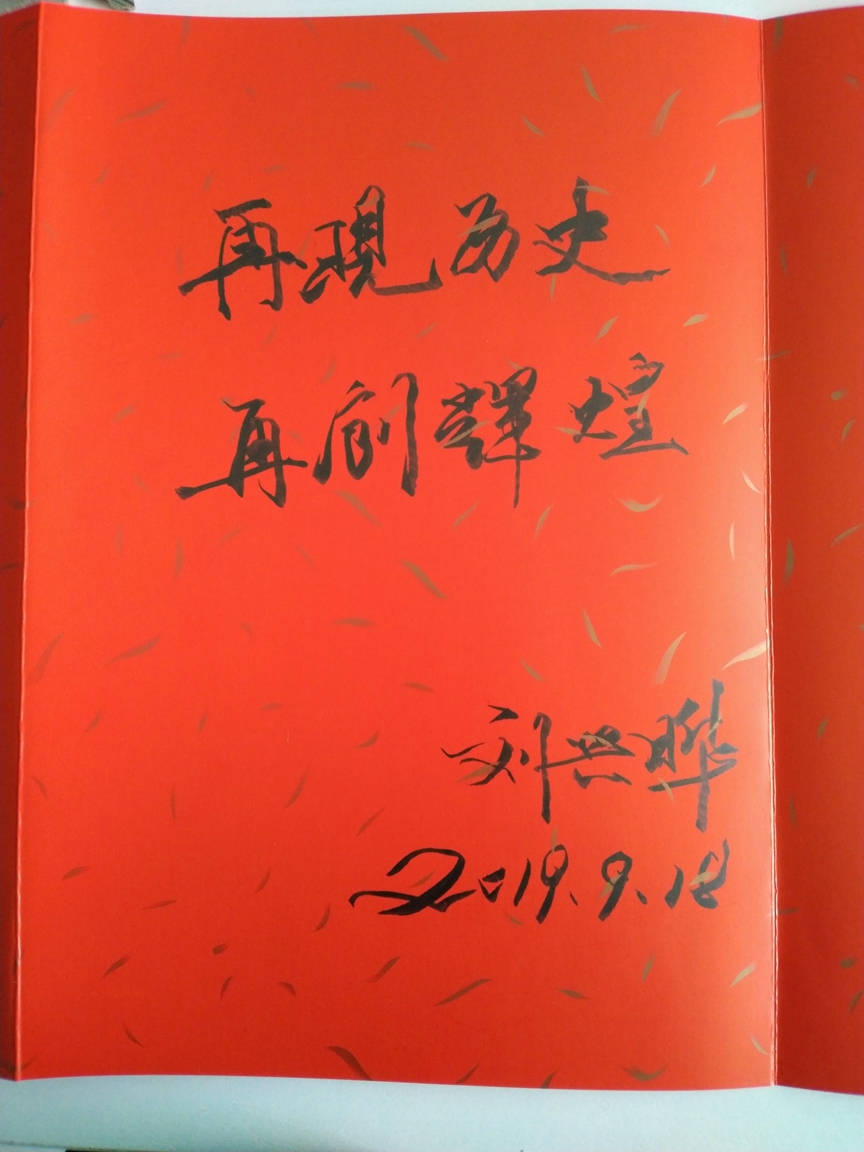 再現历史
再创輝煌
刘兴晔
2019.9.18